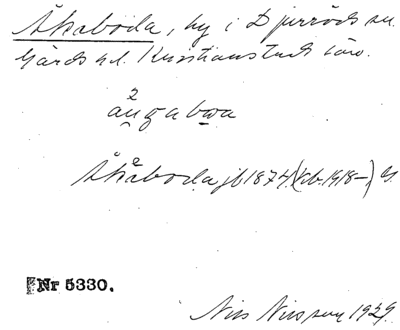 Åkaboda, by i Djurröds sn.
Gärds hd. Kristianstads län.
Åkaboda jb 1874.
Nr 5330.
Nils Nilsson 1929.